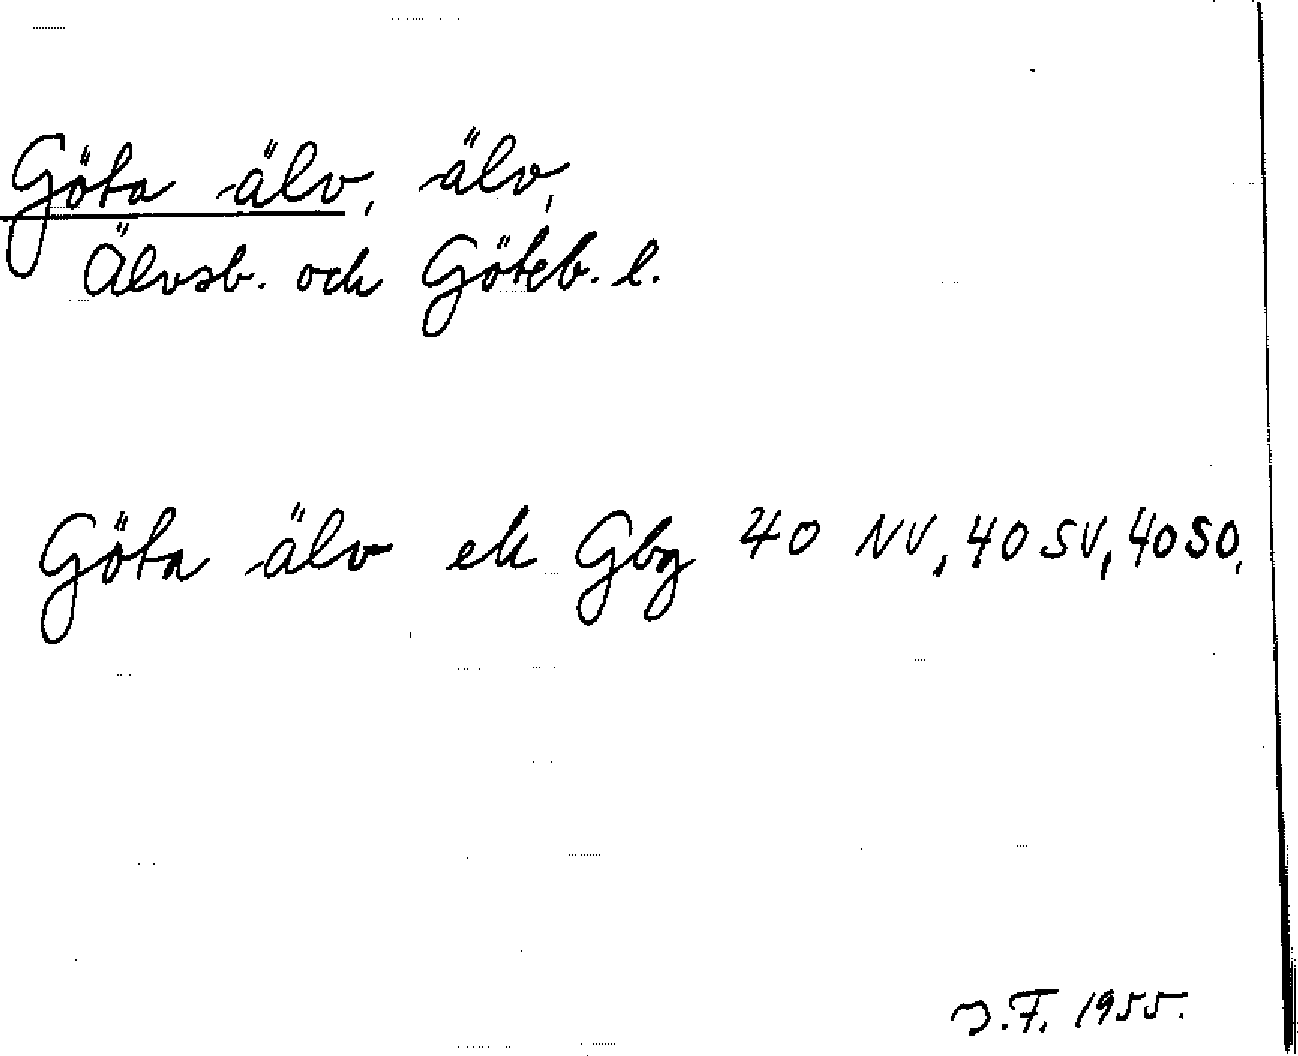 Göta älv, älv,
Älvsb. och Göteb. l.
Göta älv ek Gbg 40 NV, 40 SV, 40 SO,
J.F. 1955.